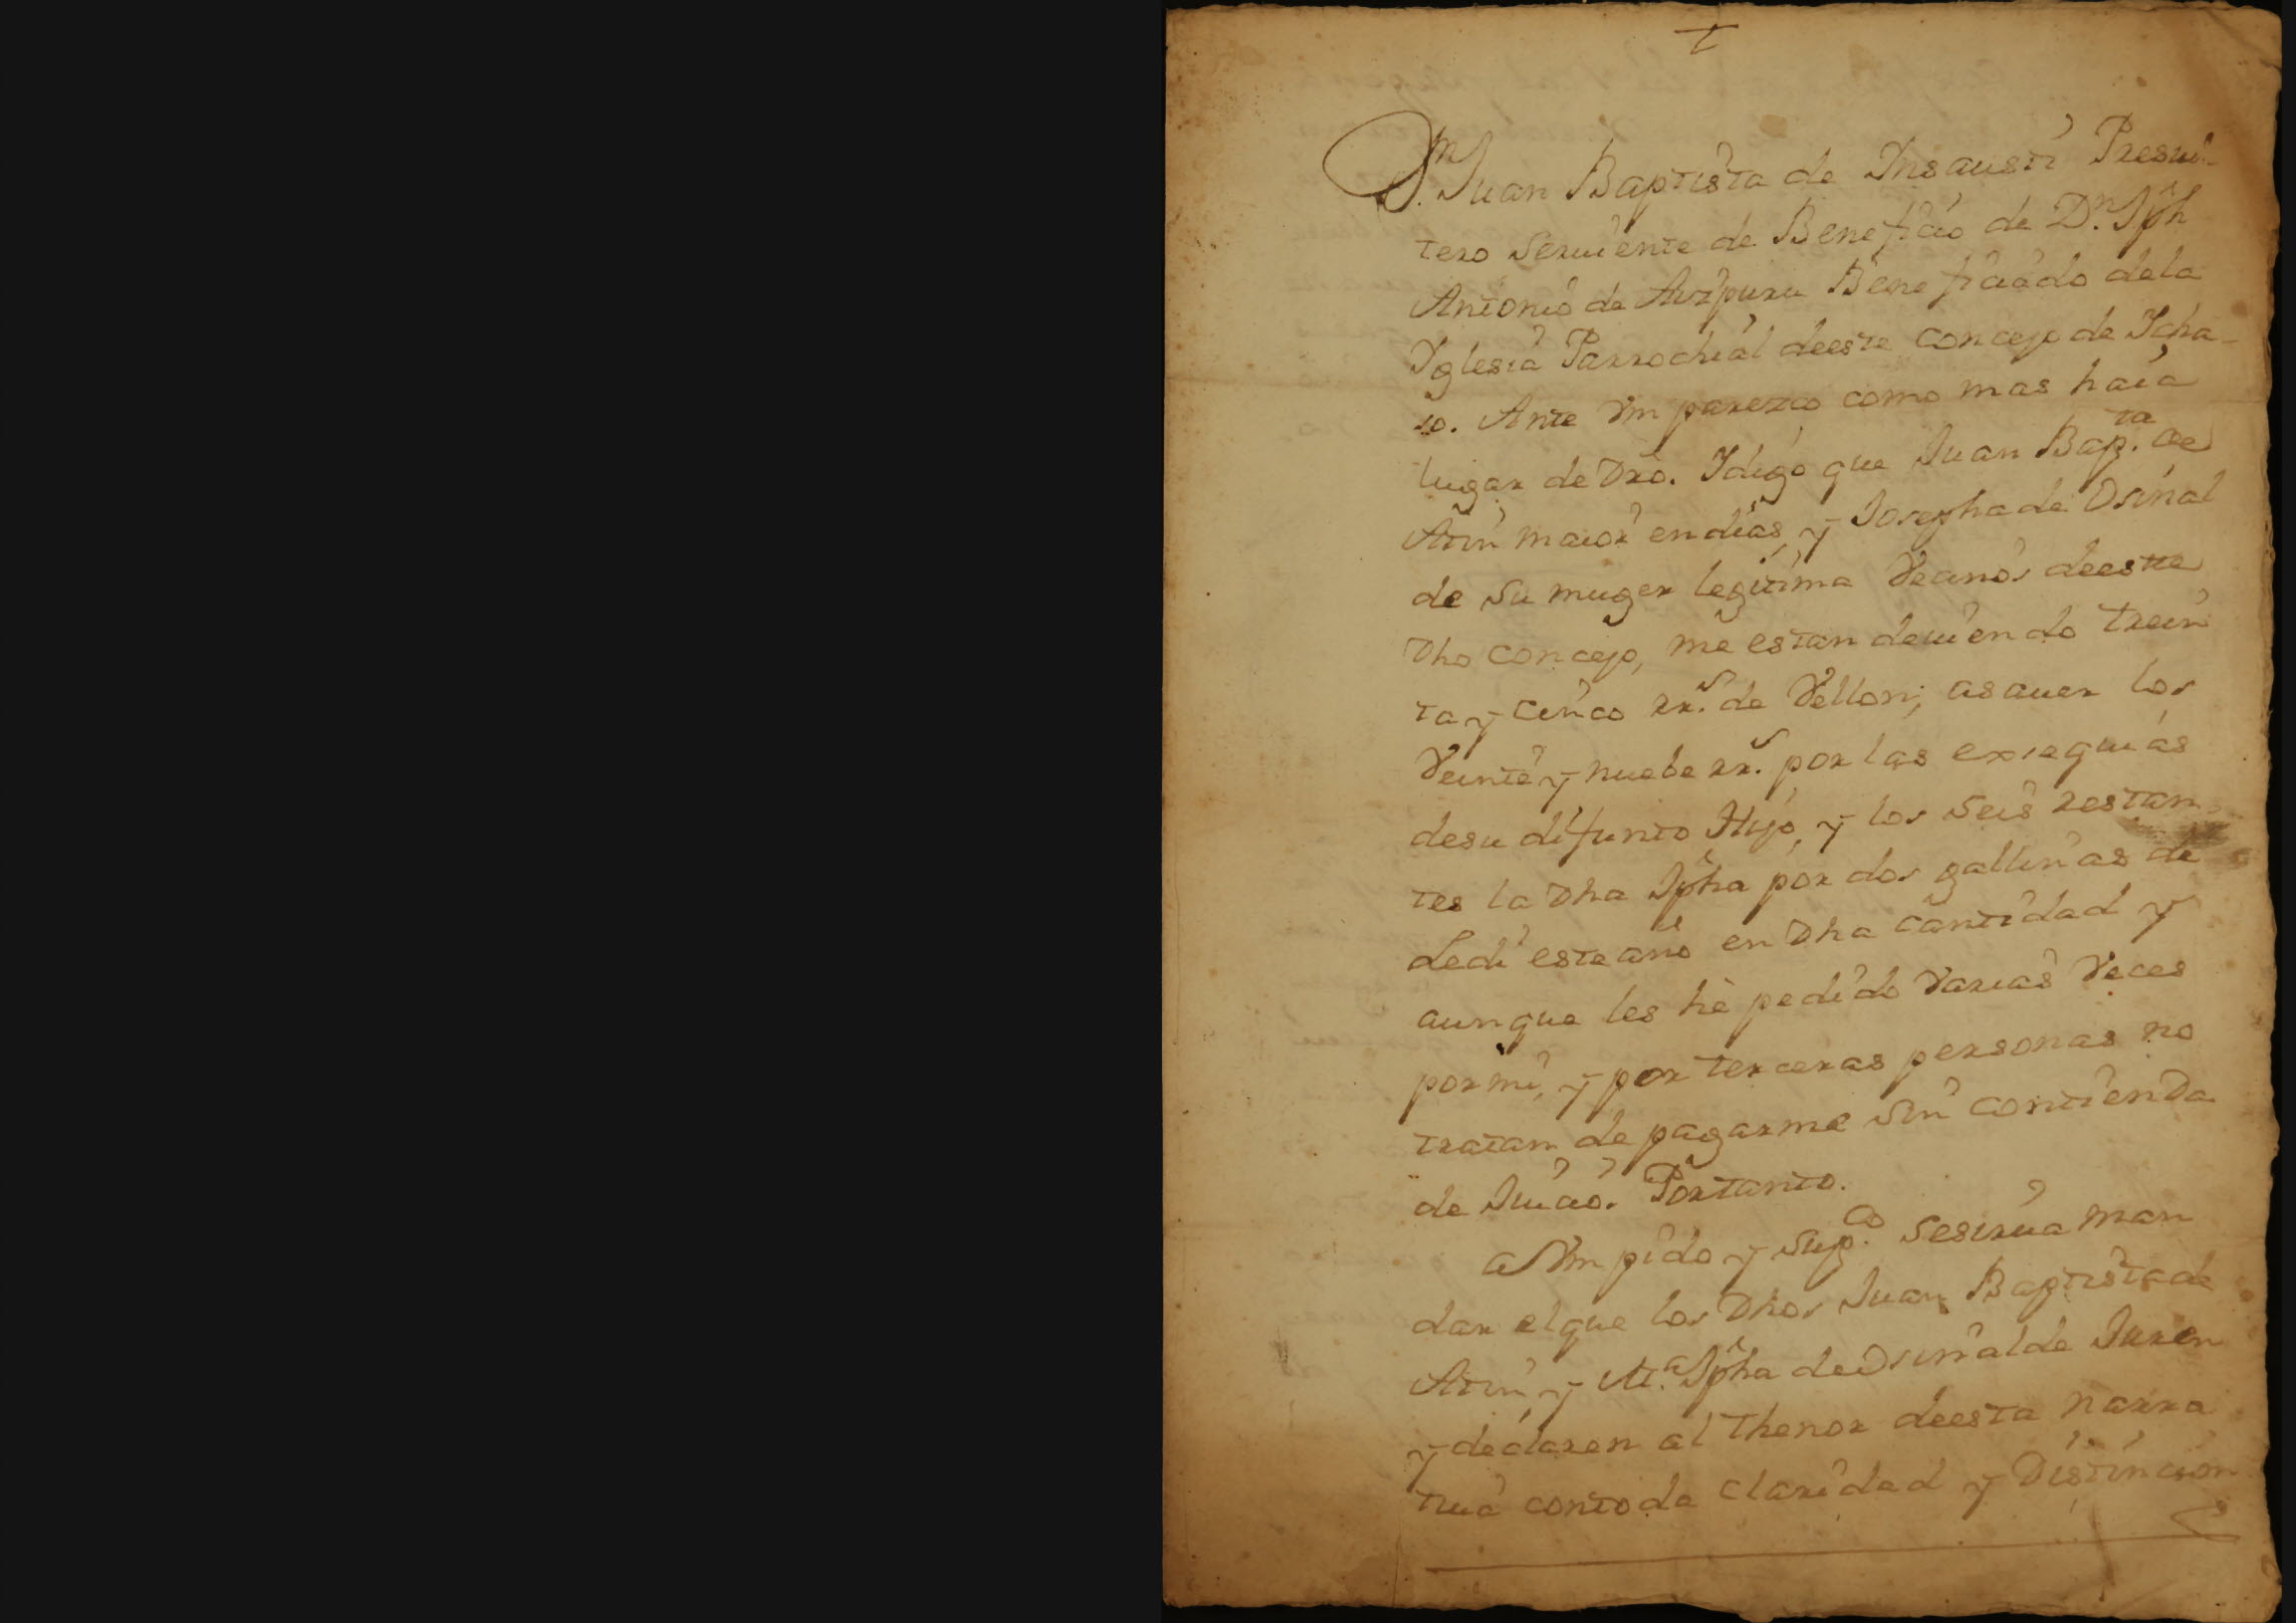 Dn. Juan Baptista de Insausti Presui-
tero seruiente de Beneficio de Dn. Jph
Antonio de Aizpuru Beneficiado dela
Yglesia Parrochial deeste concejo de Icha-
so. Ante Vm parezco como mas haia
lugar de Dro. Y digo que Juan Bapta. de
Atin maior en dias, y Josepha de Osinal
de su muger legitima Vecinos deeste
Dho concejo, me estan deuiendo trein
ta y cinco rrs. de Vellon; asauer los
Veinte y nuebe rrs. por las exsequias
desu difunto Hijo, y los seis restan
tes la Dha Jpha por dos gallinas de
Ledi este año en Dha cantidad y
aunque les hè pedido Varias Veces
por mi, y por terceras personas no
tratan de pagarme sin contienda
de Juicio. Portanto.
A Vm pido y supco. sesirua man
dar el que los Dhos Juan Baptista de
Atin y Ma. Jpha de Osinalde Juren
y declaren al thenor deesta narra
tiua contoda claridad y Distincion